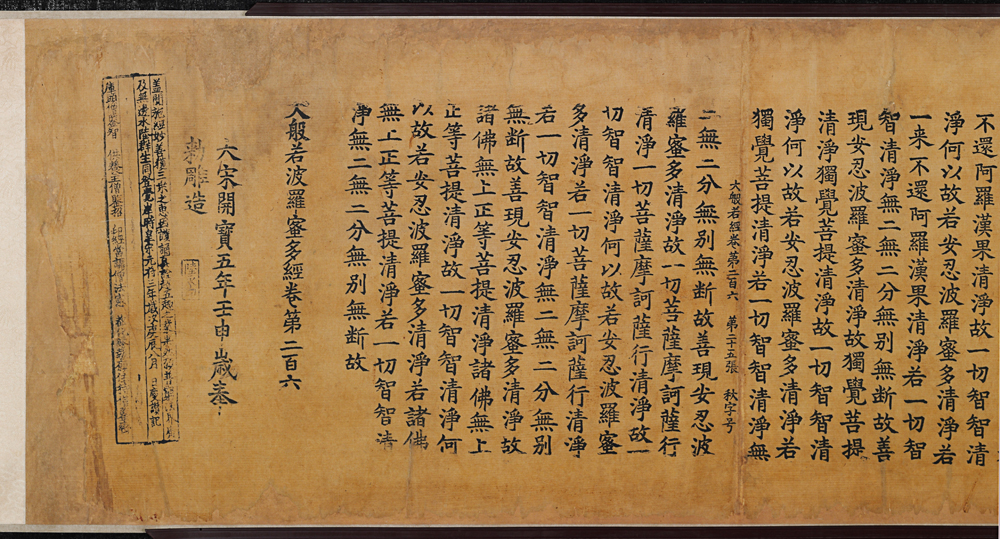 不還阿羅漢果清淨故一切智智清
淨何以故若安忍波羅蜜多清淨若
一來不還阿羅漢果清淨若一切智
智清淨無二無二分無別無斷故善
現安忍波羅蜜多清淨故獨覺菩提
清淨獨覺菩提清淨故一切智智清
淨何以故若安忍波羅蜜多清淨若
獨覺菩提清淨若一切智智清淨無
大般若經卷第二百六 第二十五張 秋字号
二無二分無別無斷故善現安忍波
羅蜜多清淨故一切菩薩摩訶薩行
清淨一切菩薩摩訶薩行清淨故一
切智智清淨何以故若安忍波羅蜜
多清淨若一切菩薩摩訶薩行清淨
若一切智智清淨無二無二分無別
無斷故善現安忍波羅蜜多清淨故
諸佛無上正等菩提清淨諸佛無上
正等菩提清淨故一切智智清淨何
以故若安忍波羅蜜多清淨若諸佛
無上正等菩提清淨若一切智智清
淨無二無二分無別無斷故
大般若波羅蜜多經卷第二百六
大宋開寶五年壬申歲奉
勅雕造
蓋聞施經妙善獲三乘之惠
及無邊水陸群生同登覺岸時皇宋大觀二年歲次戊子十月 日莊主僧福滋管居養院僧福海庫頭僧福深供養主僧福住都化緣報願住持沙門鑒巒